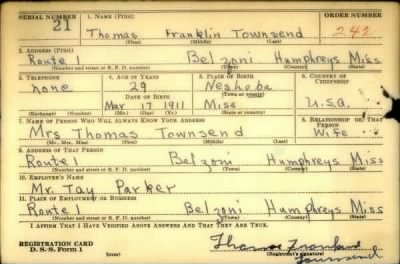 SERIAL NUMBER 1. NAME (Print) ORDER NUMBER
21 Thomas Franklin Townsend 242
(First) (Middle) (Last)
2. ADDRESS (Print)
Route 1 Belzoni Humphreys Miss
(Number and street or R. F. D. number) (Town) (County) (State)
3. TELEPHONE 4. AGE IN YEARS 5. PLACE OF BIRTH 6. COUNTRY OF CITIZENSHIP
none 29 Neshoba
DATE OF BIRTH (Town or county)
Mar 17 1911 Miss U.S.A.
(Exchange) (Number) (Mo.) (Day) (Yr.) (State or country)
7. NAME OF PERSON WHO WILL ALWAYS KNOW YOUR ADDRESS 8. RELATIONSHIP OF THAT PERSON
Mrs Thomas Townsend Wife
(Mr., Mrs., Miss) (First) (Middle) (Last)
9. ADDRESS OF THAT PERSON
Route 1 Belzoni Humphreys Miss
(Number and street or R. F. D. number) (Town) (County) (State)
10. EMPLOYER'S NAME
Mr. Tay Parker
11. PLACE OF EMPLOYMENT OR BUSINESS
Route 1 Belzoni Humphreys Miss
(Number and street or R. F. D. number) (Town) (County) (State)
I AFFIRM THAT I HAVE VERIFIED ABOVE ANSWERS AND THAT THEY ARE TRUE.
REGISTRATION CARD
D. S. S. Form 1 (over) Thomas Franklin
(Registrant's signature)
Townsend